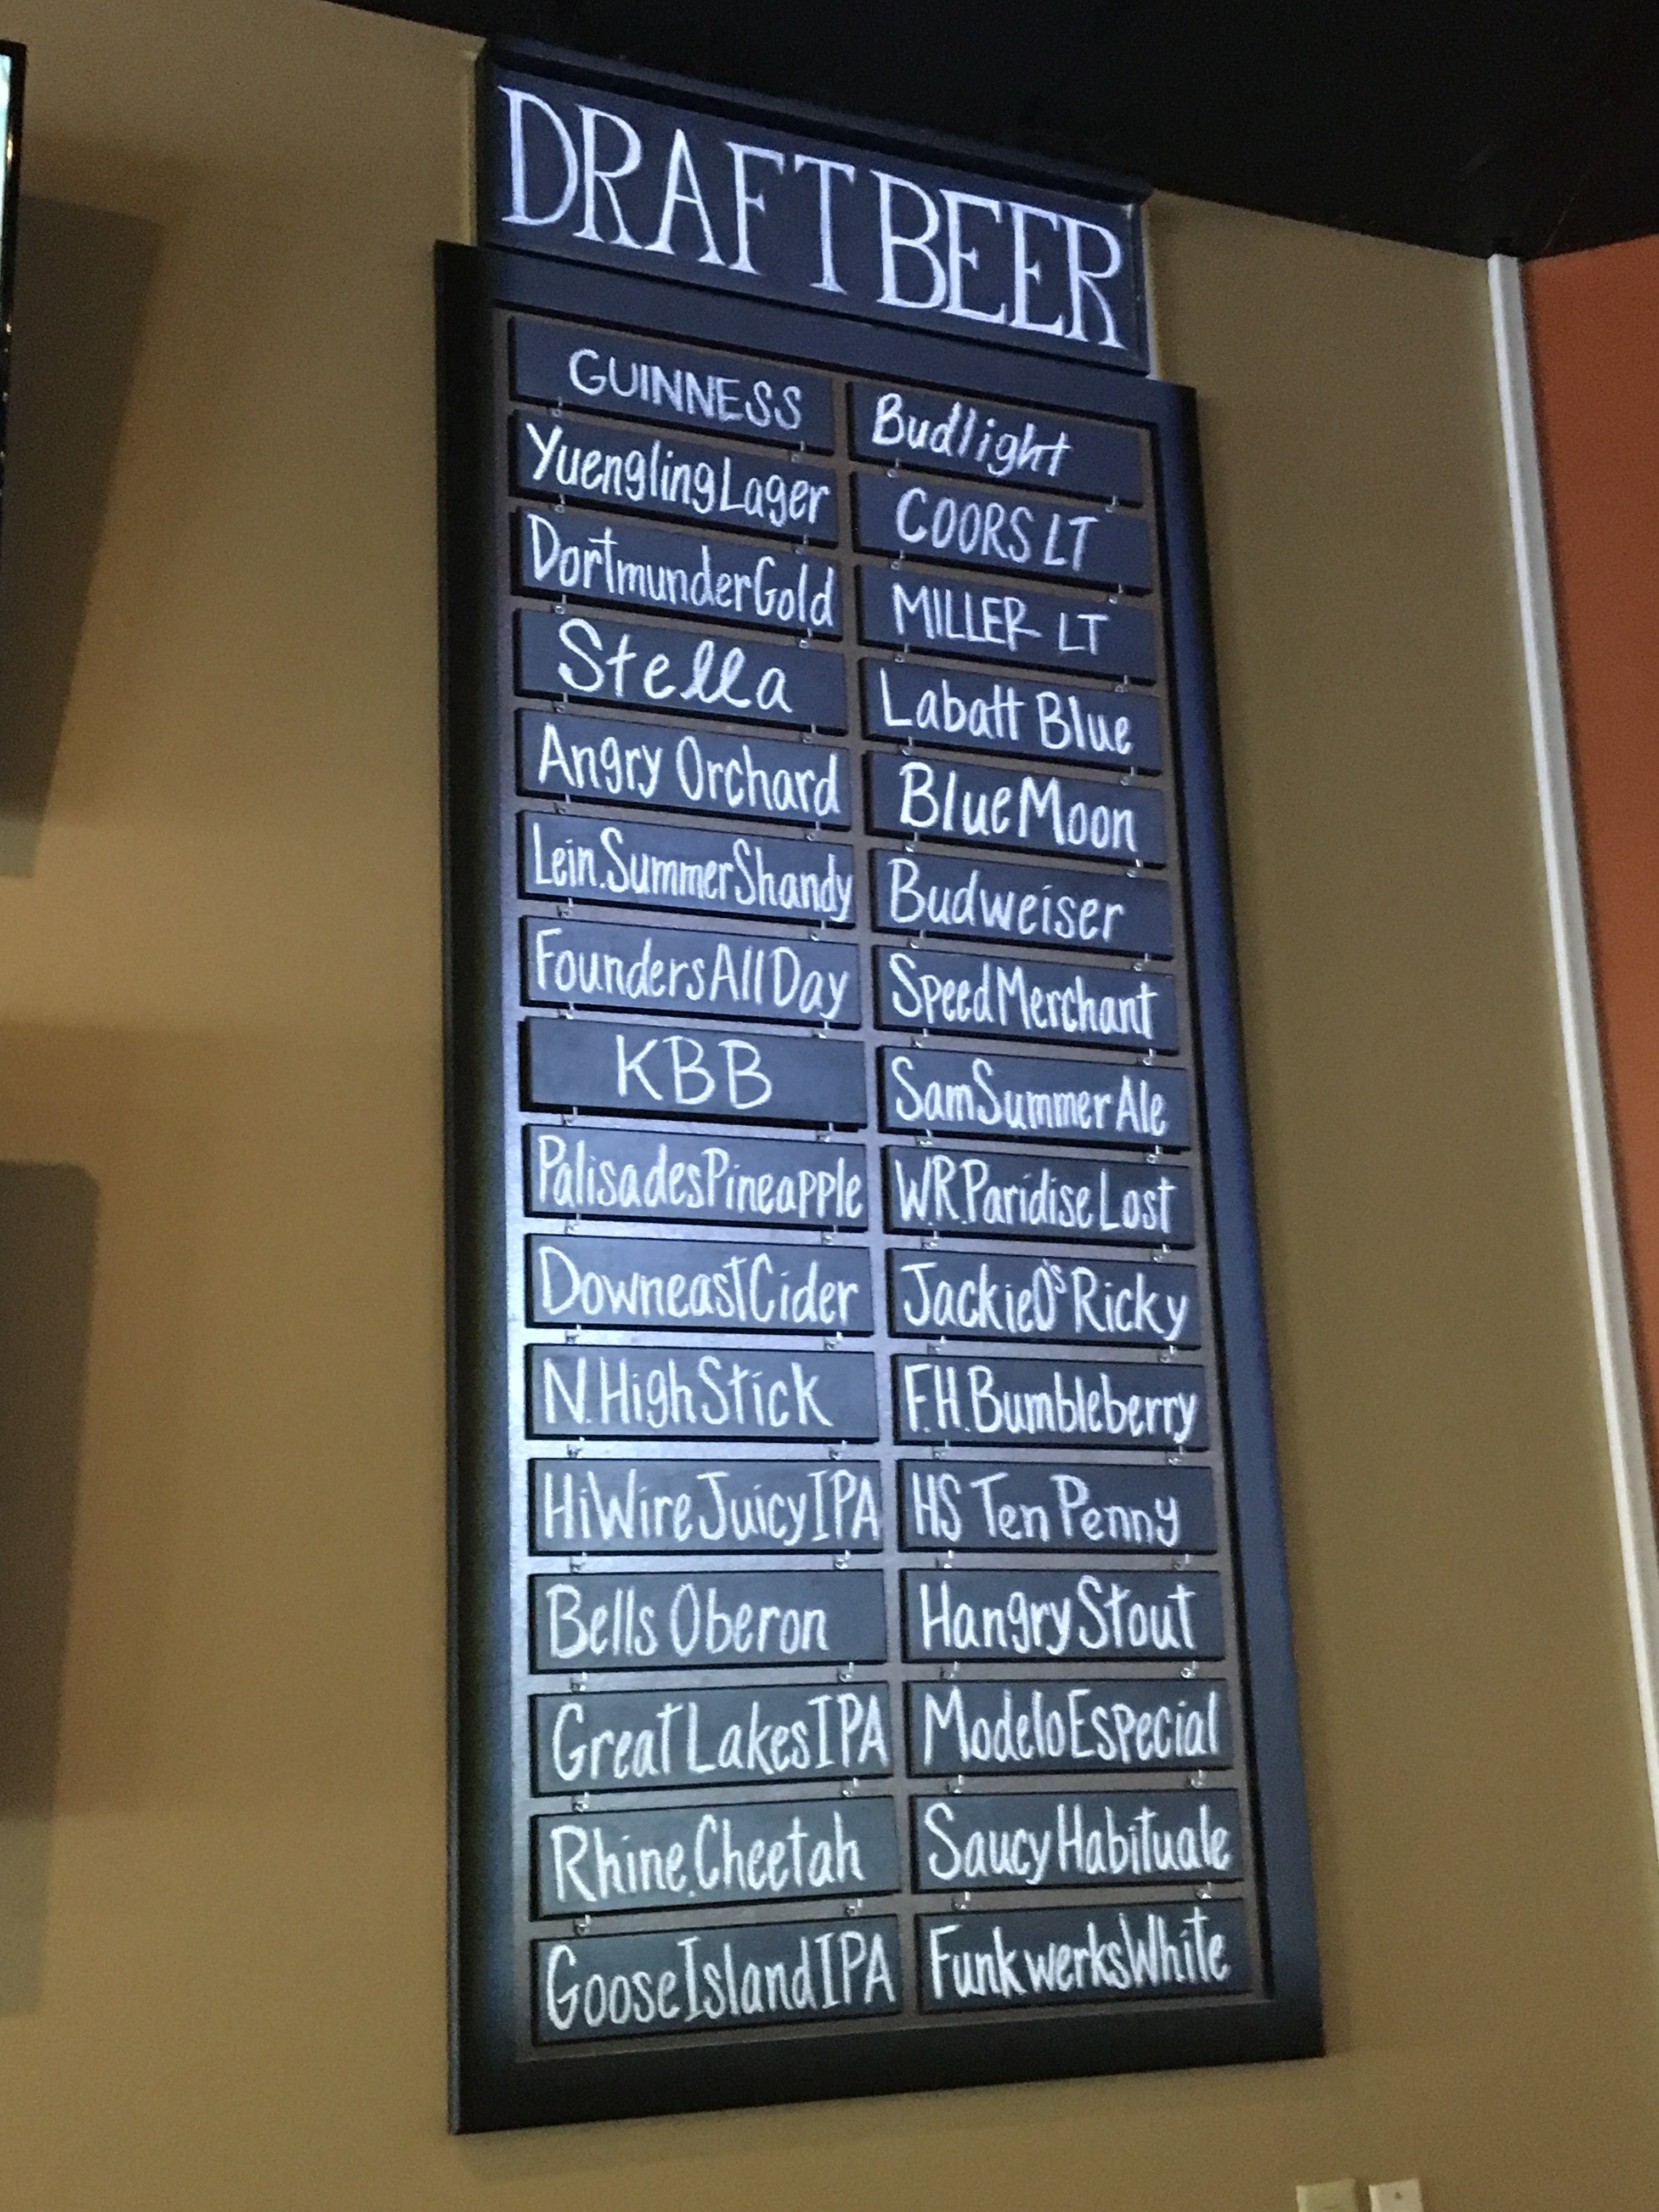 DRAFT BEER
GUINNESS
Yuengling Lager
Dortmunder Gold
Stella
Angry Orchard
Lein. Summer Shandy
Founders All Day
KBB
Palisades Pineapple
Downeast Cider
N. High Stick
HiWire Juicy IPA
Bells Oberon
Great Lakes IPA
Rhine. Cheetah
Goose Island IPA
Budlight
COORS LT
MILLER LT
Labatt Blue
Blue Moon
Budweiser
Speed Merchant
Sam Summer Ale
W.R. Paridise Lost
Jackie O's Ricky
F.H. Bumbleberry
HS Ten Penny
Hangry Stout
Modelo Especial
Saucy Habituale
Funkwerks White